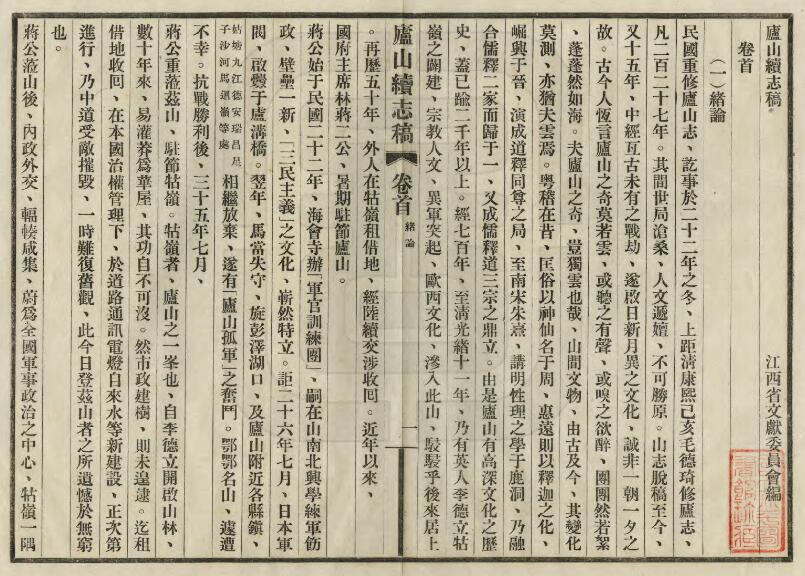 廬山續志稿　江西省文獻委員會編
卷首
（一）緒論
民國重修廬山志、訖事於二十二年之冬、上距清康熙己亥毛德琦修廬志、
凡二百二十七年。其間世局滄桑、人文遞嬗、不可勝原。山志脫稿至今、
又十五年、中經亙古未有之戰劫、遂啟日新月異之文化、誠非一朝一夕之
故。古今人恆言廬山之奇莫若雲、或聽之有聲、或嗅之欲醉、團團然若絮
、蓬蓬然如海。夫廬山之奇、豈獨雲也哉、山間文物、由古及今、其變化
莫測、亦猶夫雲焉。粵稽在昔、匡俗以神仙名于周、惠遠則以釋迦之化、
崛興于晉、演成道釋同尊之局、至南宋朱熹、講明性理之學于鹿洞、乃融
合儒釋二家而歸于一、又成儒釋道三宗之鼎立。由是廬山有高深文化之歷
史、蓋已踰二千年以上。經七百年、至清光緒十一年、乃有英人李德立牯
嶺之闢建、宗教人文、異軍突起、歐西文化、滲入此山、駸駸乎後來居上
廬山續志稿　卷首　緒論　一
。再歷五十年、外人在牯嶺租借地、經陸續交涉收囘。近年以來、
國府主席林蔣二公、暑期駐節廬山。
蔣公始于民國二十二年、海會寺辦「軍官訓練團」、嗣在山南北興學練軍飭
政、壁壘一新、「三民主義」之文化、嶄然特立。詎二十六年七月、日本軍
閥、啟釁于廬溝橋。翌年、馬當失守、旋彭澤湖口、及廬山附近各縣鎮、
姑塘九江德安瑞昌星子沙河馬迴嶺等處　相繼放棄、遂有「廬山孤軍」之奮鬥。鄂鄂名山、遽遭
不幸。抗戰勝利後、三十五年七月、
蔣公重蒞茲山、駐節牯嶺。牯嶺者、廬山之一峯也、自李德立開啟山林、
數十年來、易灌莽爲華屋、其功自不可沒。然市政建樹、則未遑逮。迄租
借地收囘、在本國治權管理下、於道路通訊電燈自來水等新建設、正次第
進行、乃中道受敵摧毀、一時難復舊觀、此今日登茲山者之所遺憾於無窮
也。
蔣公蒞山後、內政外交、輻輳咸集、蔚爲全國軍事政治之中心、牯嶺一隅